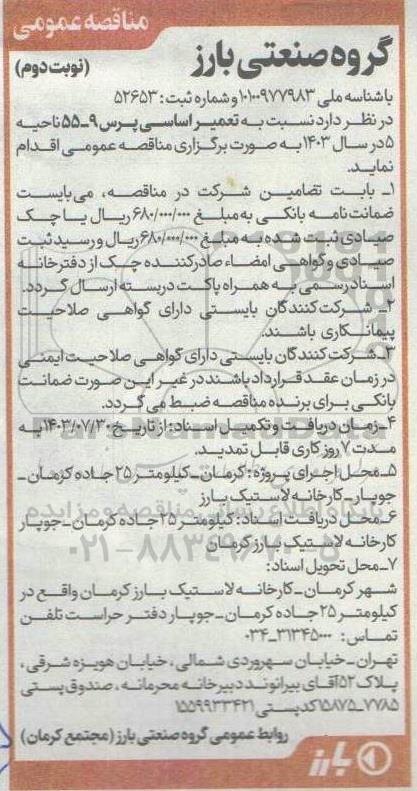 مناقصه عمومی
گروه صنعتی بارز
(نوبت دوم)
با شناسه ملی ۱۰۱۰۰۹۷۷۹۸۳ و شماره ثبت: ۵۲۶۵۳
در نظر دارد نسبت به تعمیر اساسی پرس ۹_۵۵ ناحیه
۵ در سال ۱۴۰۳ به صورت برگزاری مناقصه عمومی اقدام
نماید.
۱_ بابت تضامین شرکت در مناقصه، می‌بایست
ضمانت نامه بانکی به مبلغ ۶۸۰/۰۰۰/۰۰۰ ریال یا چک
صیادی ثبت شده به مبلغ ۶۸۰/۰۰۰/۰۰۰ ریال و رسید ثبت
صیادی و گواهی امضاء صادرکننده چک از دفترخانه
اسناد رسمی به همراه پاکت دربسته ارسال گردد.
۲_ شرکت کنندگان بایستی دارای گواهی صلاحیت
پیمانکاری باشند.
۳_ شرکت کنندگان بایستی دارای گواهی صلاحیت ایمنی
در زمان عقد قرارداد باشند در غیر این صورت ضمانت
بانکی برای برنده مناقصه ضبط می گردد.
۴_ زمان دریافت و تکمیل اسناد: از تاریخ ۱۴۰۳/۰۷/۳۰ به
مدت ۷ روز کاری قابل تمدید.
۵_ محل اجرای پروژه: کرمان _ کیلومتر ۲۵ جاده کرمان _
جوپار _ کارخانه لاستیک بارز
۶_ محل دریافت اسناد: کیلومتر ۲۵ جاده کرمان _ جوپار
کارخانه لاستیک بارز کرمان
۷_ محل تحویل اسناد:
شهر کرمان _ کارخانه لاستیک بارز کرمان واقع در
کیلومتر ۲۵ جاده کرمان _ جوپار دفتر حراست تلفن
تماس: ۳۱۳۴۵۰۰۰_۰۳۴
تهران _ خیابان سهروردی شمالی، خیابان هویزه شرقی،
پلاک ۵۲ آقای بیرانوند دبیرخانه محرمانه، صندوق پستی
۷۷۸۵_۱۵۸۷۵ کد پستی ۱۵۵۹۹۳۳۴۲۱
روابط عمومی گروه صنعتی بارز (مجتمع کرمان)
بارز
پایگاه اطلاع رسانی مناقصه و مزایده
۰۲۱-۸۸۳۴۹۶۷۰-۵